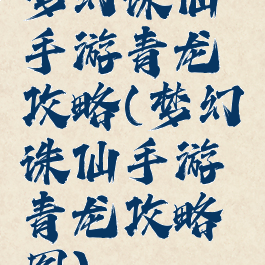 梦幻诛仙
手游青龙
攻略(梦幻
诛仙手游
青龙攻略
图)